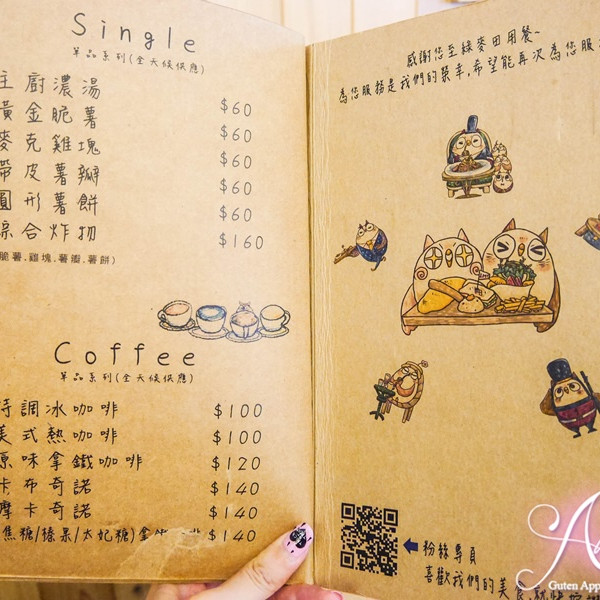 Single
單品系列(全天候供應)
主廚濃湯 $60
黃金脆薯 $60
麥克雞塊 $60
帶皮薯瓣 $60
圓形薯餅 $60
綜合炸物 $160
脆薯.雞塊.薯瓣.薯餅)
Coffee
單品系列(全天候供應)
特調冰咖啡 $100
美式熱咖啡 $100
原味拿鐵咖啡 $120
卡布奇諾 $140
摩卡奇諾 $140
焦糖/榛果/太妃糖)拿鐵 $140
感謝您至綠麥田用餐~
為您服務是我們的榮幸,希望能再次為您服
粉絲專頁
喜歡我們的美食,就快
Guten App